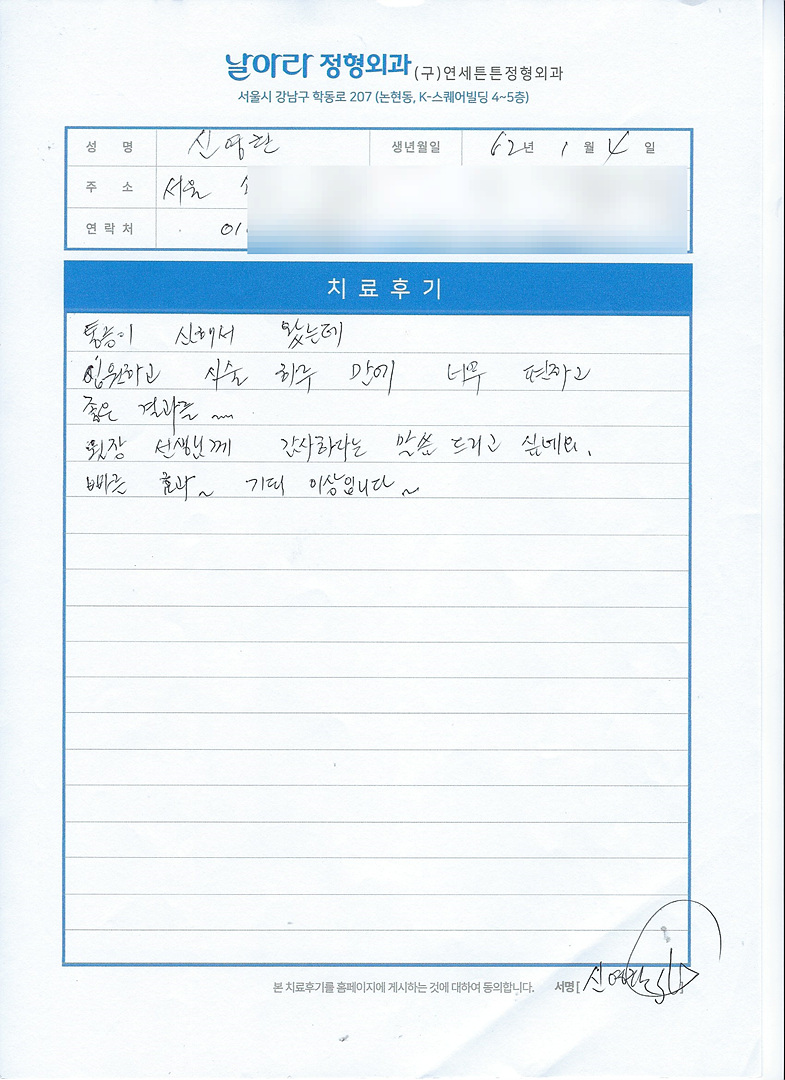 날아라 정형외과 (구)연세튼튼정형외과
서울시 강남구 학동로 207 (논현동, K-스퀘어빌딩 4~5층)
성 명 신영란 생년월일 62년 1월 4일
주 소 서울
연락처 01
치료후기
통증이 심해서 왔는데
입원하고 시술 하루 만에 너무 편하고
좋은 결과를 ~
원장 선생님께 감사하다는 말씀 드리고 싶네요.
빠른 효과~ 기대 이상입니다~
본 치료후기를 홈페이지에 게시하는 것에 대하여 동의합니다. 서명 [신영란]